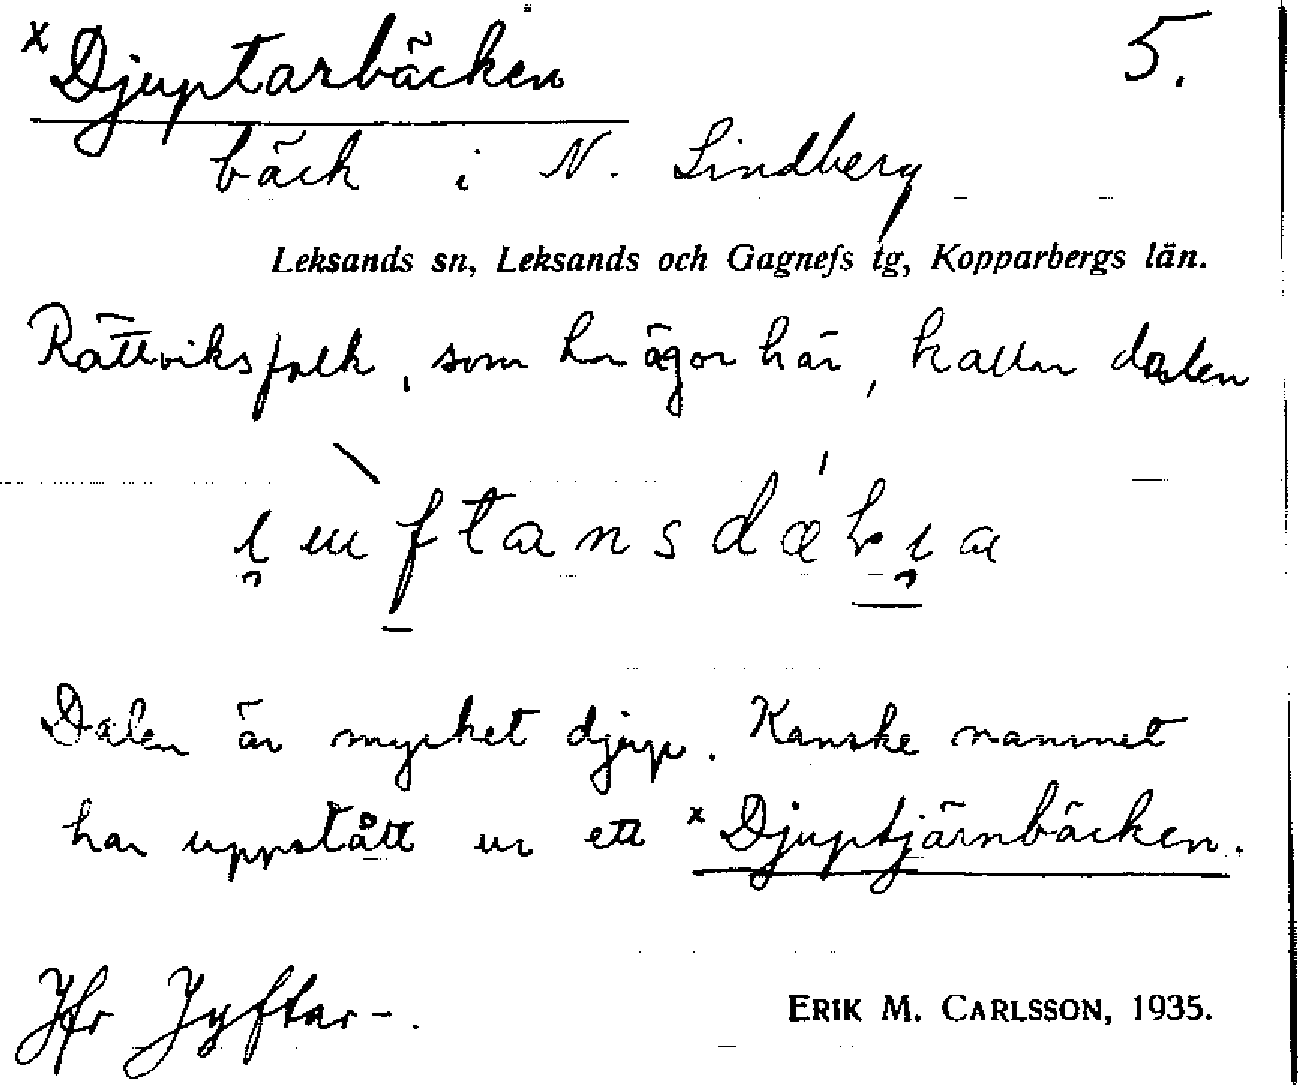 x Djuptarbäcken 5.
bäck i N. Lindberg
Leksands sn, Leksands och Gagnefs tg, Kopparbergs län.
Rättviksfolk, som har ägor här, kallar dalen
Dalen är mycket djup. Kanske namnet
har uppstått ur ett x Djuptjärnbäcken.
Jfr Jyftar-.
ERIK M. CARLSSON, 1935.